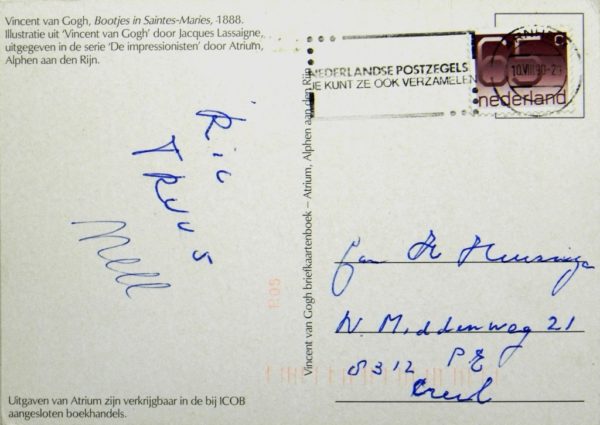 Vincent van Gogh, Bootjes in Saintes-Maries, 1888.
Illustratie uit 'Vincent van Gogh' door Jacques Lassaigne,
uitgegeven in de serie 'De impressionisten' door Atrium,
Alphen aan den Rijn.
Ric
Truus
Nell
Uitgaven van Atrium zijn verkrijgbaar in de bij ICOB
aangesloten boekhandels.
Vincent van Gogh briefkaartenboek – Atrium, Alphen aan den Rijn
NEDERLANDSE POSTZEGELS
JE KUNT ZE OOK VERZAMELEN
65 c
nederland
10.VIII.90
Jan H Huisinga
N. Middenweg 21
8312 PE
Creil